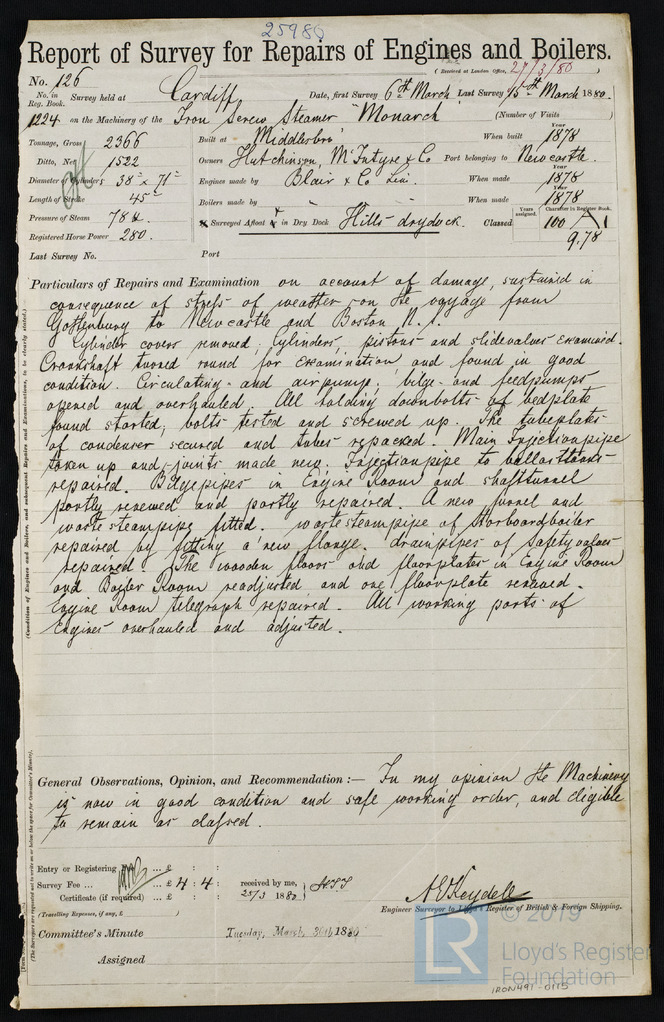 25980
Report of Survey for Repairs of Engines and Boilers.
No. 126 (Received at London Office, 27/3/80)
No. in Reg. Book. Survey held at Cardiff Date, first Survey 6th March Last Survey 15th March 1880.
1224 on the Machinery of the Iron Screw Steamer "Monarch (Number of Visits )
Tonnage, Gross 2366 Built at Middlesbro' When built Year 1878
Ditto, Net 1522 Owners Hutchinson, McIntyre & Co Port belonging to Newcastle.
Diameter of Cylinders 38" x 71" Engines made by Blair & Co Lim. When made Year 1878
Length of Stroke 45" Boilers made by " " When made Year 1878
Pressure of Steam 78 Surveyed Afloat or in Dry Dock Hills drydock. Classed Years assigned. 100 Character in Register Book. A1
Registered Horse Power 280. 9.78
Last Survey No. Port
Particulars of Repairs and Examination on account of damage, sustained in
consequence of stress of weather on the voyage from
Gothenburg to Newcastle and Boston
Cylinder covers removed; Cylinders, pistons and slidevalves examined.
Crankshaft turned round for examination and found in good
condition. Circulating- and airpump; bilge- and feedpumps
opened and overhauled. All holding downbolts of bedplate
found started, bolts tested and screwed up. The tubeplates
of condenser secured and tubes repacked. Main Injectionpipe
taken up and joints made new. Injectionpipe to ballasttanks
repaired. Bilgepipes in Engine Room and shafttunnel
partly renewed and partly repaired. A new funnel and
wastesteampipe fitted. wastesteampipe of Starboardboiler
repaired by fitting a new flange. drainpipes of Safetyvalves
repaired. The wooden floors and floorplates in Engine Room
and Boiler Room readjusted and one floorplate renewed.
Engine Room telegraph repaired. All working parts of
Engines overhauled and adjusted.
General Observations, Opinion, and Recommendation :— In my opinion the Machinery
is now in good condition and safe working order, and eligible
to remain as classed.
Entry or Registering Fee ... £ : :
Survey Fee ... £ 4 : 4 : received by me,
Certificate (if required) ... £ : : 25/3 1880
(Travelling Expenses, if any, £ )
A E Keydell
Engineer Surveyor to Lloyd's Register of British & Foreign Shipping.
Committee's Minute Tuesday, March 30th 1880
Assigned
(Condition of Engines and Boilers, and subsequent Repairs and Examinations, to be clearly stated.)
(The Surveyors are requested not to write on or below the space for Committee's Minute.)
© 2019
LR
Lloyd's Register
Foundation
IRON491-0115